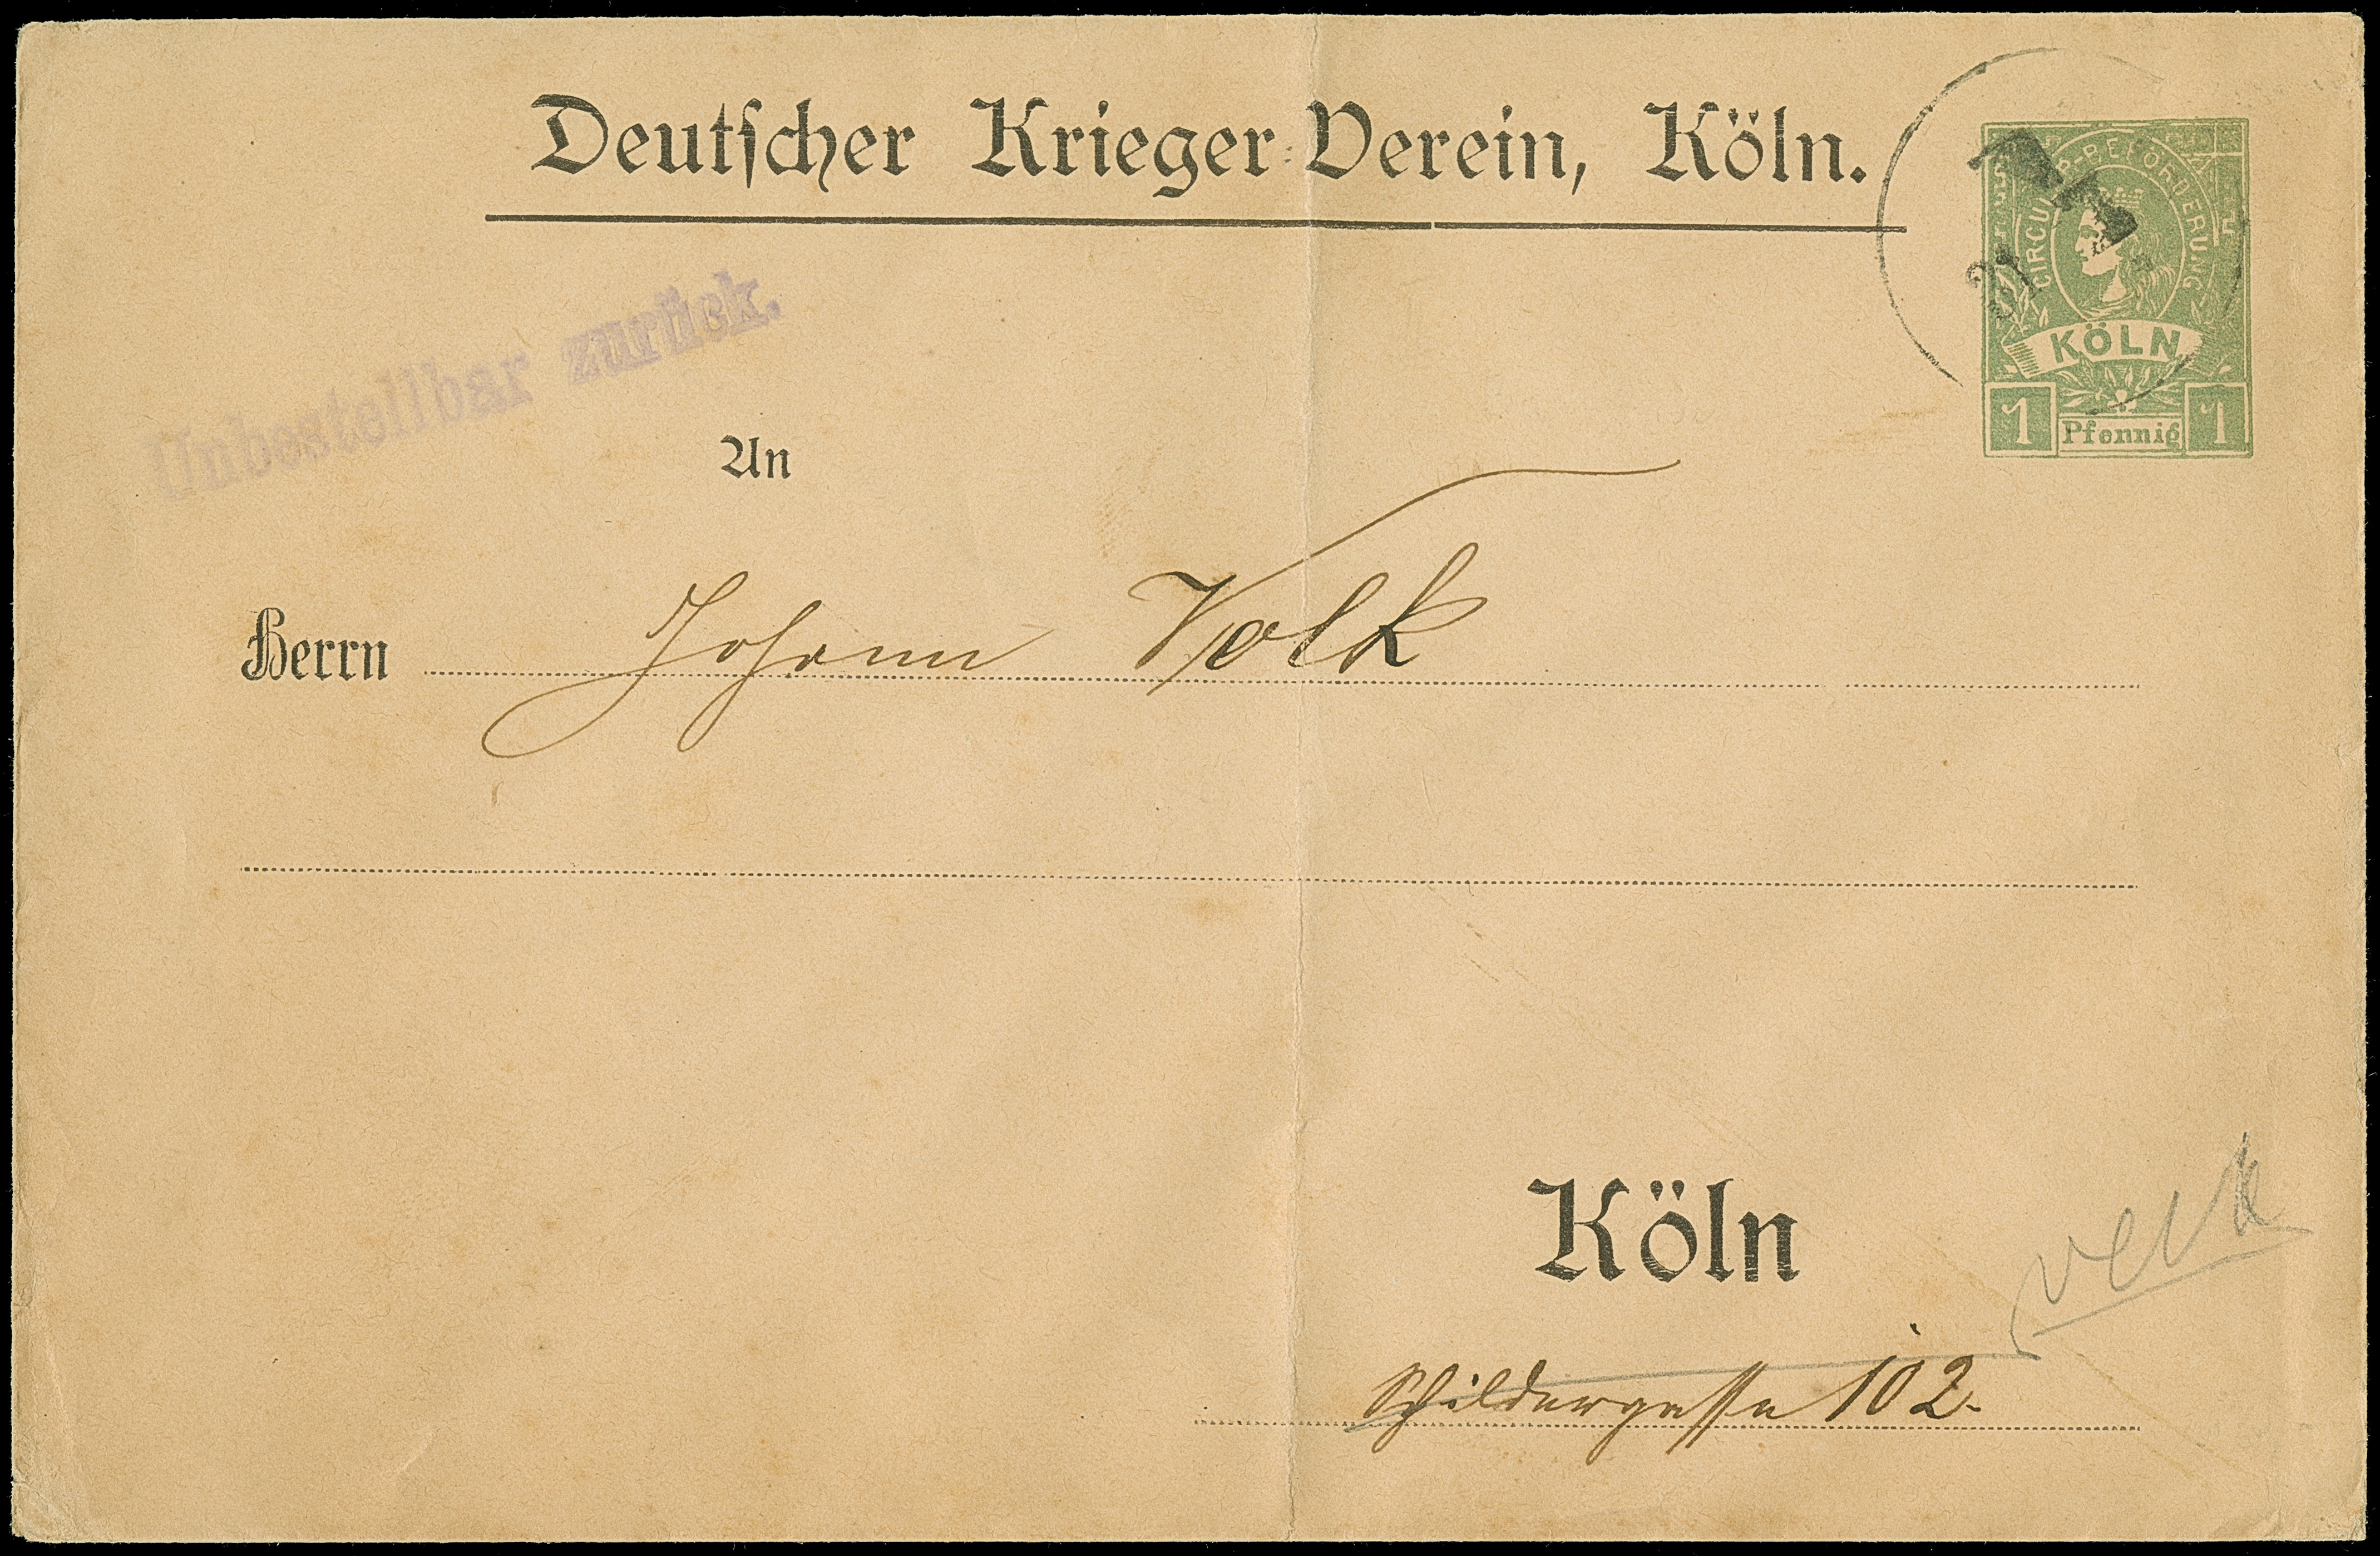 Deutſcher Krieger-Verein, Köln.
CIRCULAR-BEFÖRDERUNG
KÖLN
1 Pfennig 1
Unbestellbar zurück.
An
Herrn Johann Volk
Köln
Schildergasse 102.